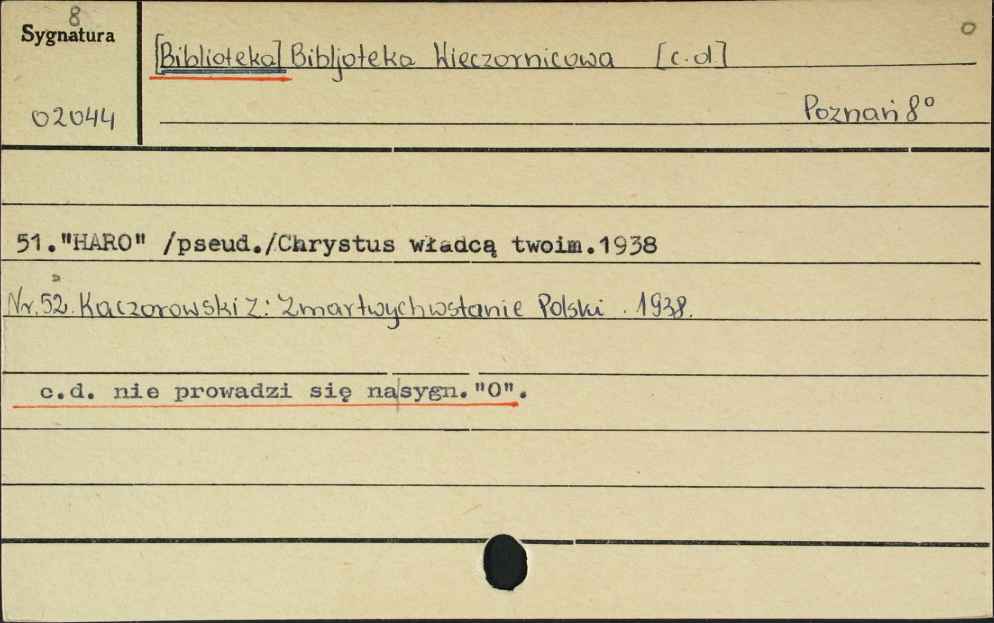 8
Sygnatura
0
[Biblioteka] Bibljoteka Wieczornicowa [c.d.]
02044
Poznań 8°
51."HARO" /pseud./Chrystus władcą twoim.1938
Nr. 52. Kaczorowski Z: Zmartwychwstanie Polski . 1938.
c.d. nie prowadzi się na|sygn."O".